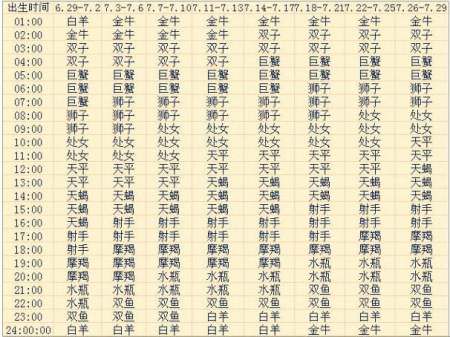 出生时间 6.29-7.2 7.3-7.6 7.7-7.10 7.11-7.13 7.14-7.17 7.18-7.21 7.22-7.25 7.26-7.29
01:00 白羊 金牛 金牛 金牛 金牛 金牛 金牛 金牛
02:00 金牛 金牛 金牛 金牛 双子 双子 双子 双子
03:00 双子 双子 双子 双子 双子 双子 双子 双子
04:00 双子 双子 双子 双子 巨蟹 巨蟹 巨蟹 巨蟹
05:00 巨蟹 巨蟹 巨蟹 巨蟹 巨蟹 巨蟹 巨蟹 巨蟹
06:00 巨蟹 巨蟹 巨蟹 巨蟹 巨蟹 狮子 狮子 狮子
07:00 巨蟹 狮子 狮子 狮子 狮子 狮子 狮子 狮子
08:00 狮子 狮子 狮子 狮子 狮子 狮子 处女 处女
09:00 狮子 狮子 处女 处女 处女 处女 处女 处女
10:00 处女 处女 处女 处女 处女 处女 处女 天平
11:00 处女 处女 处女 天平 天平 天平 天平 天平
12:00 天平 天平 天平 天平 天平 天平 天蝎 天蝎
13:00 天平 天平 天平 天蝎 天蝎 天蝎 天蝎 天蝎
14:00 天蝎 天蝎 天蝎 天蝎 天蝎 天蝎 天蝎 天蝎
15:00 天蝎 天蝎 天蝎 天蝎 天蝎 射手 射手 射手
16:00 天蝎 射手 射手 射手 射手 射手 射手 射手
17:00 射手 射手 射手 射手 射手 射手 摩羯 摩羯
18:00 射手 摩羯 摩羯 摩羯 摩羯 摩羯 摩羯 摩羯
19:00 摩羯 摩羯 摩羯 摩羯 摩羯 水瓶 水瓶 水瓶
20:00 摩羯 摩羯 水瓶 水瓶 水瓶 水瓶 水瓶 水瓶
21:00 水瓶 水瓶 水瓶 水瓶 水瓶 双鱼 双鱼 双鱼
22:00 水瓶 双鱼 双鱼 双鱼 双鱼 双鱼 双鱼 双鱼
23:00 双鱼 双鱼 双鱼 白羊 白羊 白羊 白羊 白羊
24:00:00 白羊 白羊 白羊 白羊 白羊 金牛 金牛 金牛